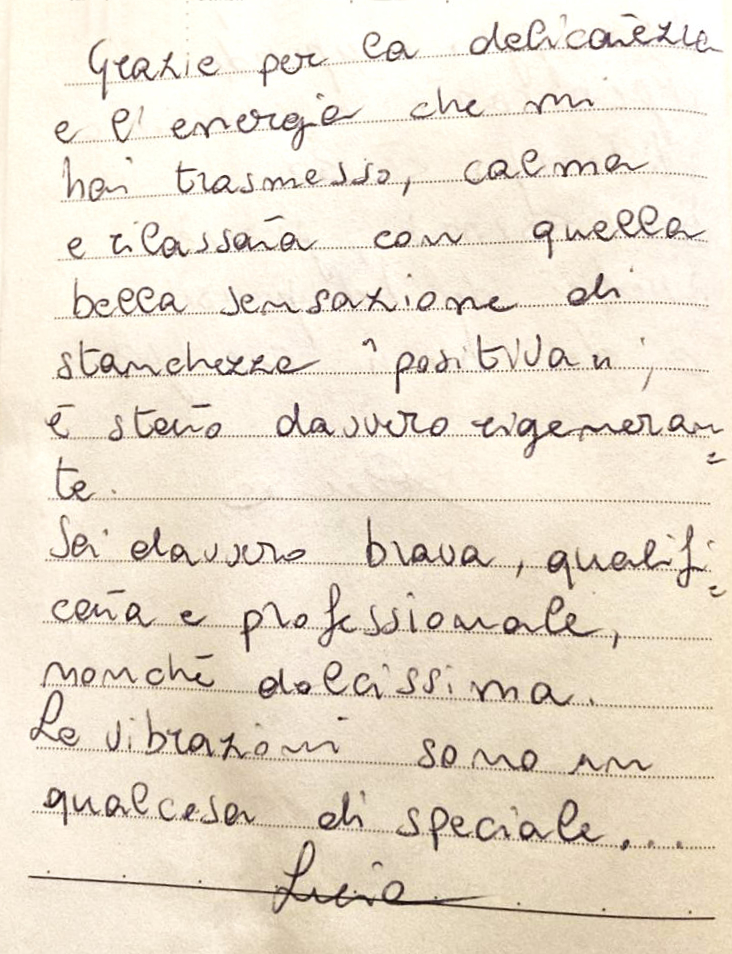 Grazie per la delicatezza
e l'energia che mi
hai trasmesso, calma
e rilassata con quella
bella sensazione di
stanchezza "positiva";
è stato davvero rigeneran=
te.
Sei davvero brava, qualifi=
cata e professionale,
nonchè dolcissima.
Le vibrazioni sono un
qualcosa di speciale....
Lucia